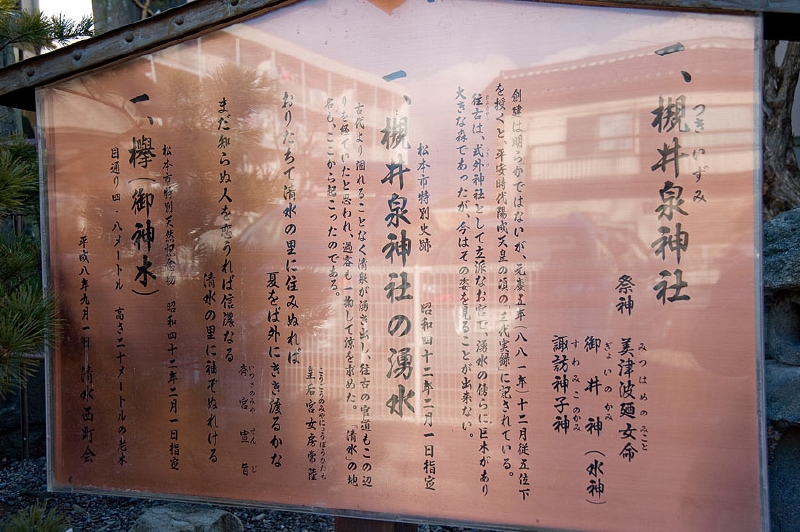 一、槻井泉神社
つきいずみ
祭神 美津波廼女命
みつはめのみこと
御井神(水神)
ぎょいのかみ
諏訪神子神
すわみこのかみ
創建は明らかではないが、元慶五年(八八一年)十二月従五位下
を授くと、平安時代陽成天皇の頃の「三代実録」に記されている。
往古は、式外神社として立派なお宮で、湧水の傍らに巨木があり
大きな森であったが、今はその姿を見ることが出来ない。
一、槻井泉神社の湧水
松本市特別史跡 昭和四十二年二月一日指定
古代より涸れることなく清泉が湧き出し、往古の官道もこの辺
りを経ていたと思われ、過客も一掬して涼を求めた。「清水」の地
名も、ここから起こったのである。
皇后宮女房常陸
こうごうのみやにょうぼうひたち
おりたちて清水の里に住みぬれば
夏をば外にきき渡るかな
斉宮宣旨
いつきのみやせんじ
まだ知らぬ人を恋うれば信濃なる
清水の里に袖ぞぬれける
一、欅(御神木)
松本市特別天然記念物 昭和四十二年二月一日指定
目通り四・八メートル 高さ二十メートルの老木
平成八年九月一日 清水西町会